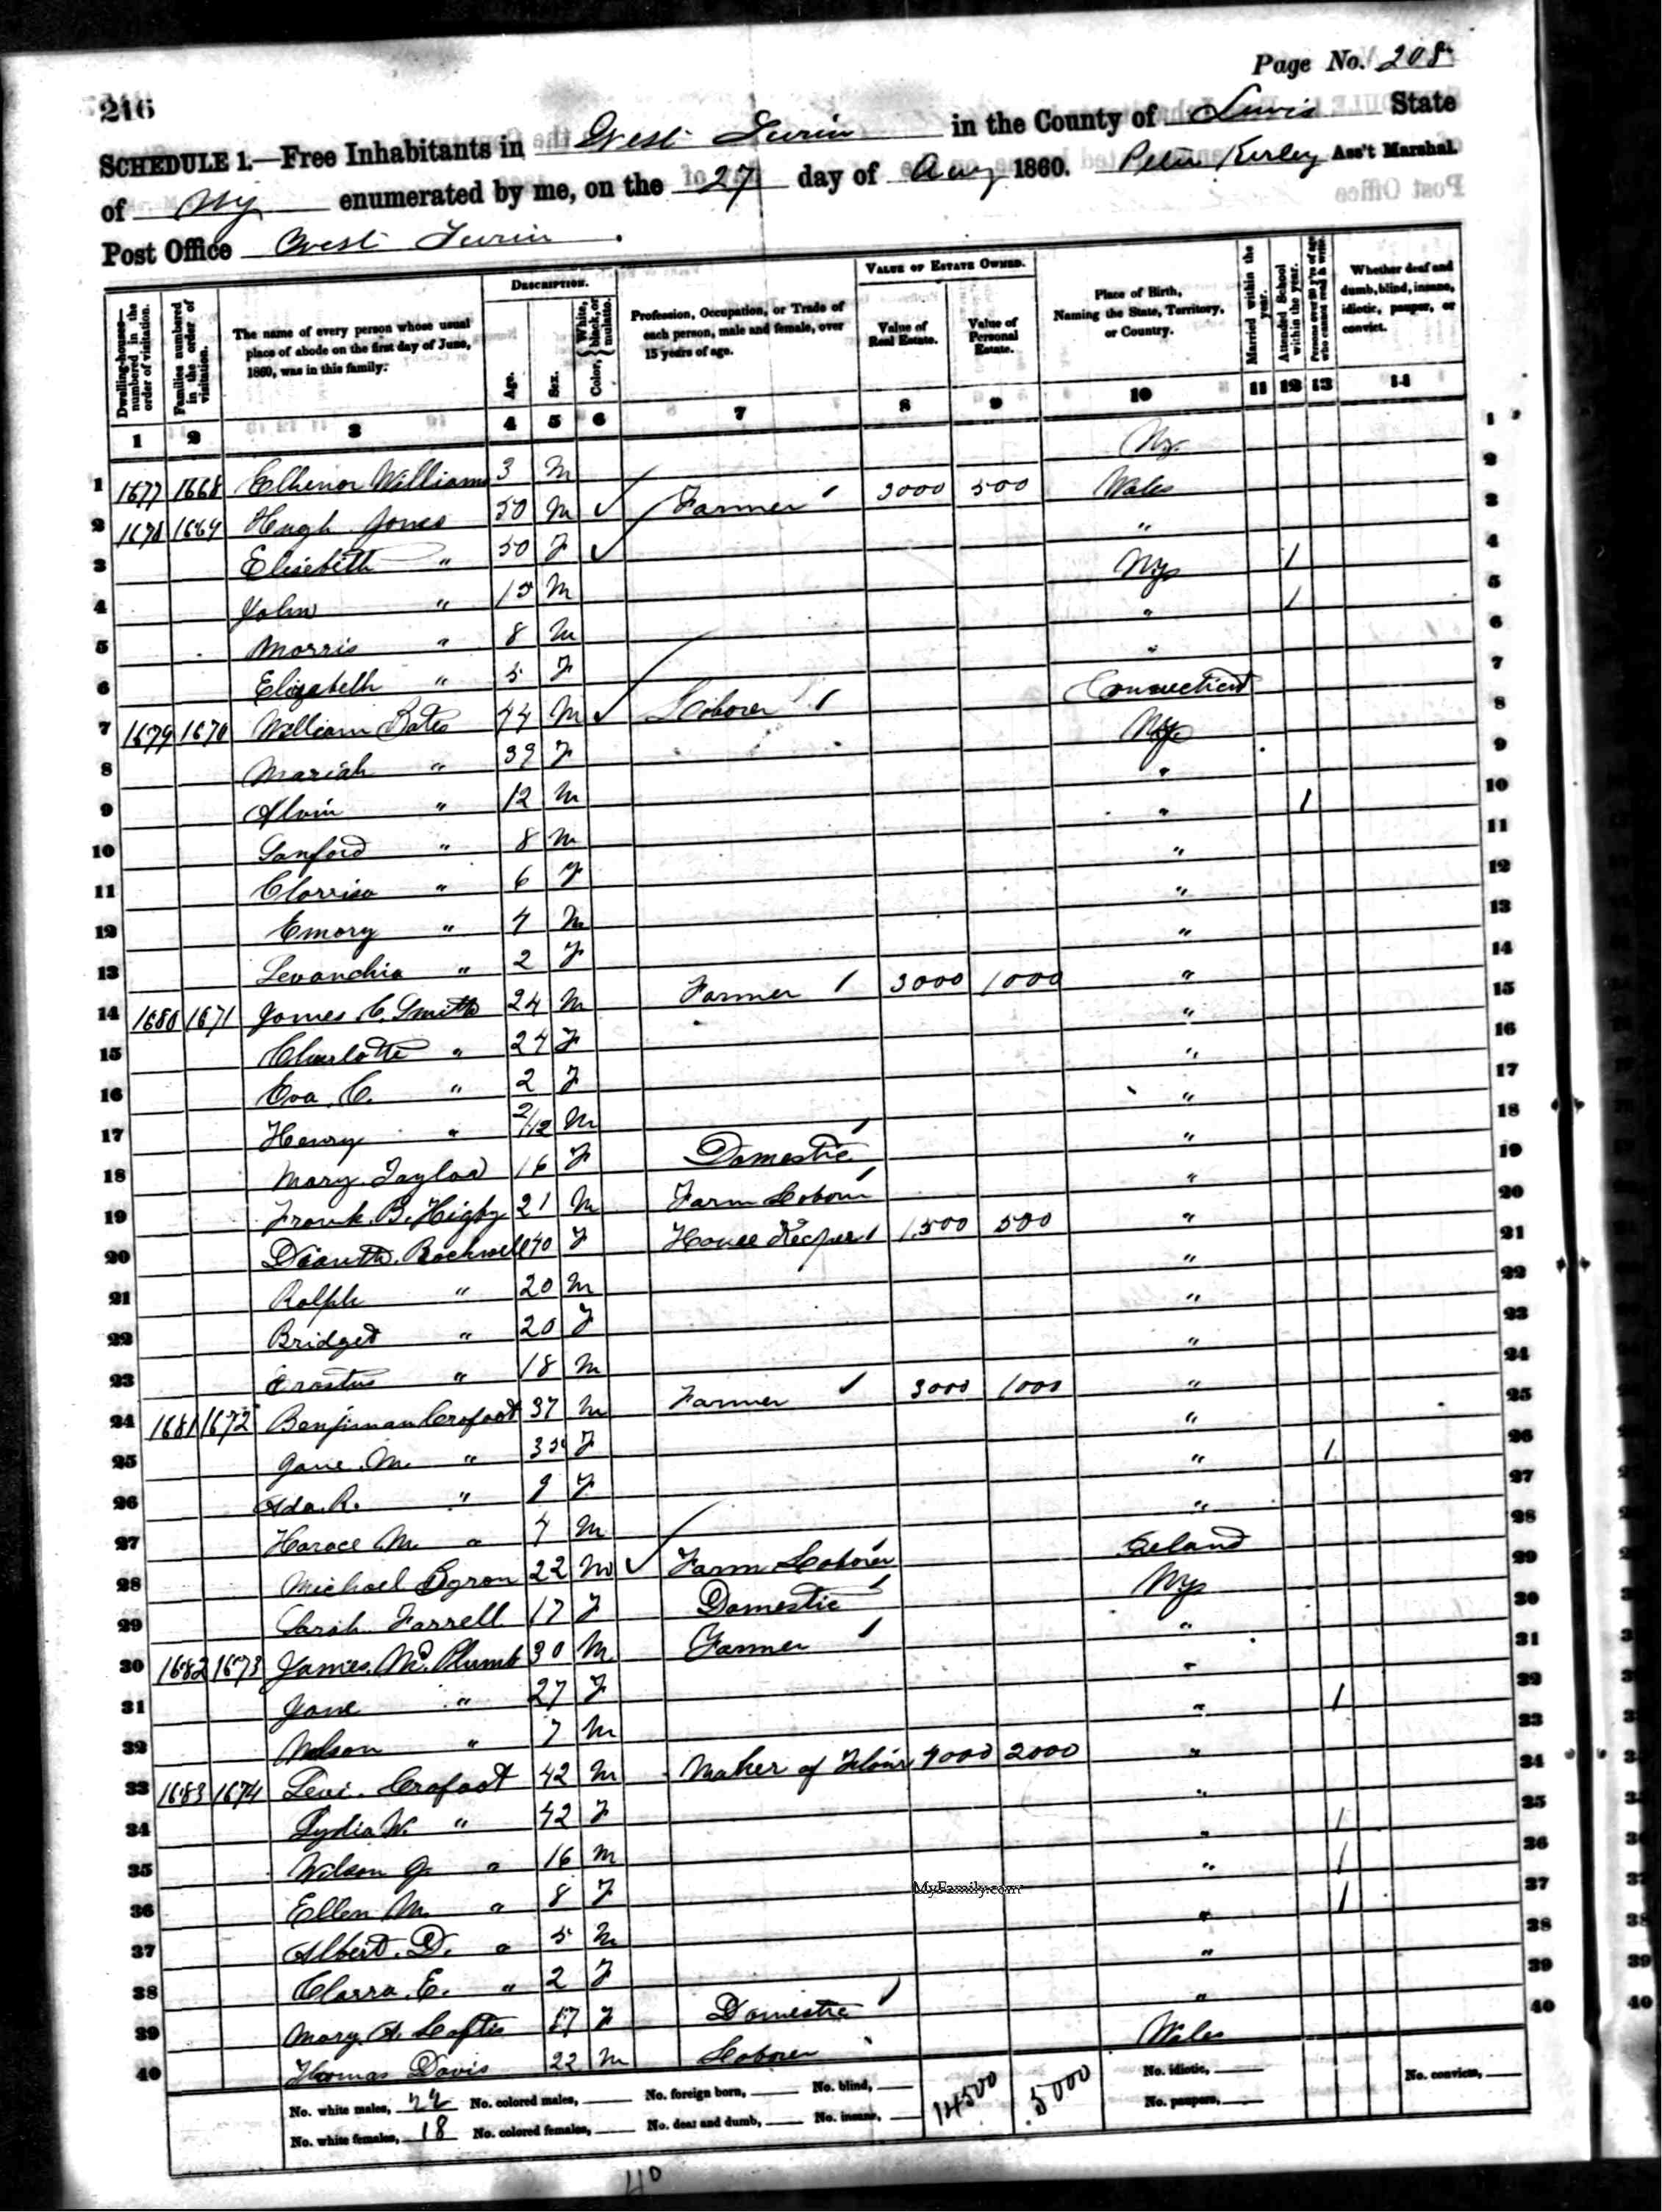 Page No. 208
216
SCHEDULE 1.—Free Inhabitants in West Turin in the County of Lewis State
of NY enumerated by me, on the 27 day of Aug 1860. Peter Kerley Ass't Marshal.
Post Office West Turin
Dwelling-houses—numbered in the order of visitation.
Families numbered in the order of visitation.
The name of every person whose usual place of abode on the first day of June, 1860, was in this family.
DESCRIPTION.
Age.
Sex.
Color, { White, black, or mulatto.
Profession, Occupation, or Trade of each person, male and female, over 15 years of age.
VALUE OF ESTATE OWNED.
Value of Real Estate.
Value of Personal Estate.
Place of Birth, Naming the State, Territory, or Country.
Married within the year.
Attended School within the year.
Persons over 20 y'rs of age who cannot read & write.
Whether deaf and dumb, blind, insane, idiotic, pauper, or convict.
1 2 3 4 5 6 7 8 9 10 11 12 13 14
1 1677 1668 Elhenor Williams 3 M Ny 1
2 1678 1669 Hugh Jones 50 M ✓ Farmer 3000 500 Wales 2
3 Elisebeth " 50 F ✓ " 3
4 John " 15 M Ny 1 4
5 Morris " 8 M " 1 5
6 Elizabeth " 5 F " 6
7 1679 1670 William Bates 44 M ✓ Laborer Connecticut 7
8 Mariah " 39 F Ny 8
9 Alvin " 12 M " 9
10 Sanford " 8 M " 1 10
11 Clarrisa " 6 F " 11
12 Emory " 4 M " 12
13 Levanchia " 2 F " 13
14 1680 1671 James C. Smith 24 M Farmer 3000 1000 " 14
15 Charlotte " 24 F " 15
16 Eva C. " 2 F " 16
17 Henry " 2/12 M " 17
18 Mary Taylor 16 F Domestic " 18
19 Frank B. Higby 21 M Farm Labour " 19
20 Rockwell 40 F House Keeper 1,500 500 " 20
21 Ralph " 20 M " 21
22 Bridget " 20 F " 22
23 Erastus " 18 M " 23
24 1681 1672 Benjiman Crofoot 37 M Farmer 3000 1000 " 24
25 Jane M. " 35 F " 25
26 Ada R. " 9 F " 1 26
27 Horace M. " 4 M " 27
28 Michael Byron 22 M ✓ Farm Laborer Ireland 28
29 Sarah Farrell 17 F Domestic Ny 29
30 1682 1673 James Mc. Plumb 30 M Farmer " 30
31 Jane " 27 F " 31
32 Nelson " 7 M " 1 32
33 1683 1674 Levi Crofoot 42 M Maker of Flour 4000 2000 " 33
34 Lydia W. " 42 F " 34
35 Wilson G. " 16 M " 1 35
36 Ellen M. " 8 F " 1 36
37 Albert D. " 5 M " 1 37
38 Clarra E. " 2 F " 38
39 Mary A. Loftis 17 F Domestic " 39
40 Thomas Davis 22 M Laborer Wales 40
MyFamily.com
No. white males, 22 No. colored males, No. foreign born, No. blind, 14500 5000 No. idiotic, No. convicts,
No. white females, 18 No. colored females, No. deaf and dumb, No. insane, No. paupers,
40